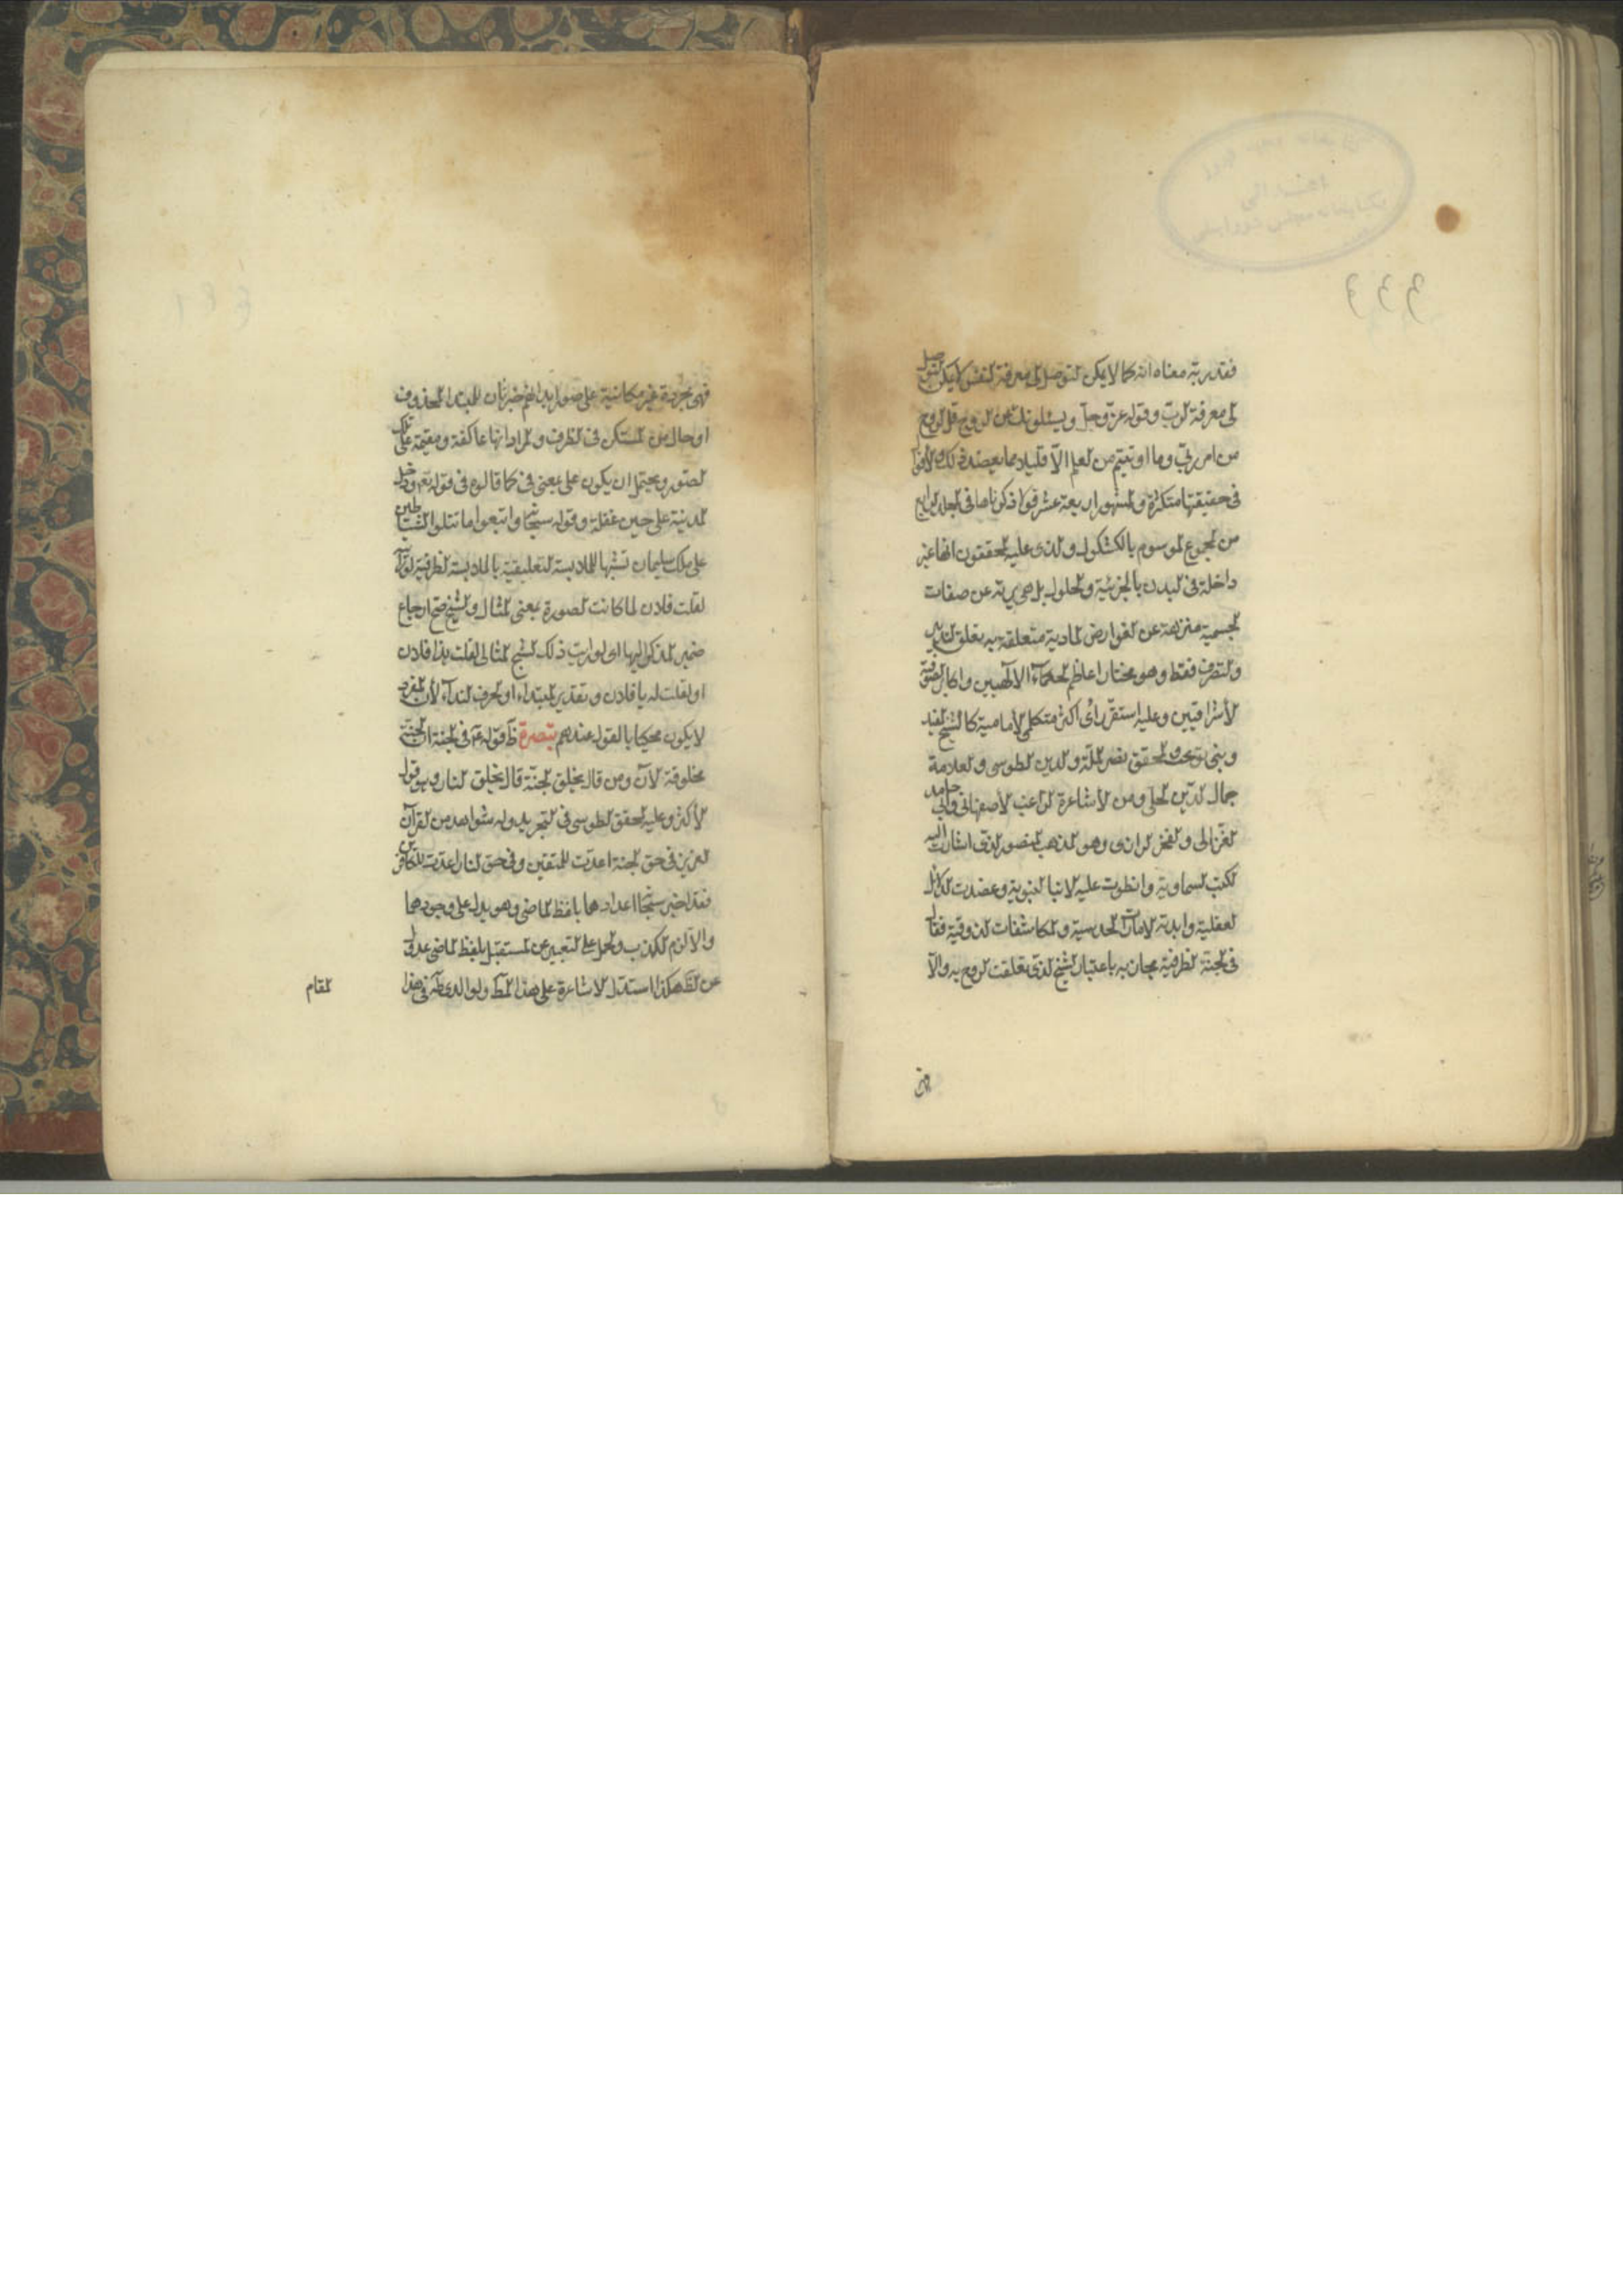 فقد ربه معناه انه كما لا يمكن التوصل الى معرفة النفس لا يمكن التوصل
الى معرفة الرب وقوله عز وجل ويسئلونك عن الروح قل الروح
من امر ربي وما اوتيتم من العلم الا قليلا مما يعضد ذلك والاقوال
فى حقيقتها متكثرة والمشهور اربعة عشر قولا ذكرناها فى المجلد الرابع
من المجموع الموسوم بالكشكول والذى عليه المحققون انها غير
داخلة فى البدن بالجزئية والحلول بل هى برية عن صفات
الجسمية منزهة عن العوارض المادية متعلقة به تعلق التدبير
والتصرف فقط وهو مختار اعاظم الحكماء الالهيين واكابر الصوفية
الأشراقيين وعليه استقر رأى اكثر متكلمى الأمامية كالشيخ المفيد
وبنى نوبخت والمحقق نصير الملة والدين الطوسى والعلامة
جمال الدين الحلى ومن الأشاعرة الراغب الأصفهانى وابى حامد
الغزالى والفخر الرازى وهو المذهب المنصور الذى اشارت اليه
الكتب السماوية وانطوت عليه الانباء النبوية وعضدت الدلائل
العقلية وايدته الامارات الحدسية والمكاشفات الذوقية فقال
فى الجنة الظرفية مجازية باعتبار الشبح الذى تعلقت الروح به والا
فهى
فهى مجردة غير مكانية على صور ابدانهم خبر ثان للمبتدا المحذوف
او حال من المستكن فى الظرف والمراد انها عاكفة ومقيمة على تلك
الصور ويحتمل ان يكون على بمعنى فى كما قالوه فى قوله تعم ودخل
المدينة على حين غفلة وقوله سبحانه واتبعوا ما تتلوا الشياطين
على ملك سليمان تشبيها للملابسة التعليقية بالملابسة الظرفية لو رايته
لقلت فلان لما كانت الصورة بمعنى المثال والشبح صح ارجاع
ضمير المذكر اليها اى لو رايت ذلك الشبح المثالى لقلت هذا فلان
او لقلت له يا فلان وتقدير المبتداء او حرف النداء لأن المفرد
لا يكون محكيا بالقول عندهم تبصرة ظ قوله عم فى الجنة ان الجنة
مخلوقة الآن ومن قال بخلق الجنة قال بخلق النار وهو قول
الأكثر وعليه المحقق الطوسى فى التجريد وله شواهد من القرآن
العزيز فى حق الجنة اعدت للمتقين وفى حق النار اعدت للكافرين
فقد اخبر سبحانه اعدادهما بلفظ الماضى وهو يدل على وجودهما
والا لزم الكذب والحمل على التعبير عن المستقبل بلفظ الماضى عدول
عن الظ هكذا استدل الاشاعرة على هذا المط ولوالدى طاب ثراه فى هذا
المقام